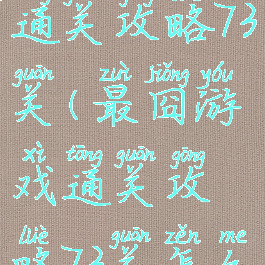 通关攻略73
guān zuì jiǒng yóu
关(最囧游
xì tōng guān gōng
戏通关攻
lüè guān zěn me
略73关怎么